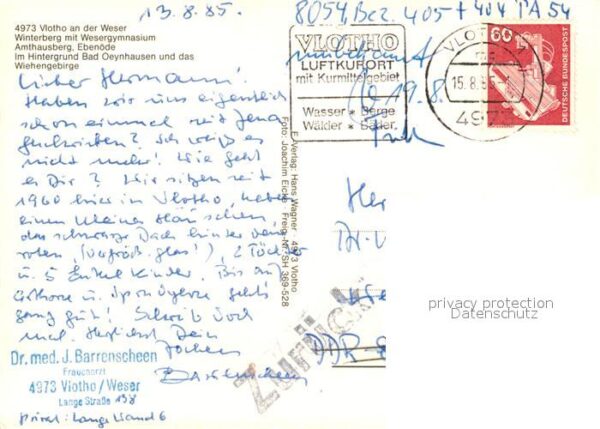 13.8.85.
4973 Vlotho an der Weser
Winterberg mit Wesergymnasium
Amthausberg, Ebenöde
im Hintergrund Bad Oeynhausen und das
Wiehengebirge
Lieber Hermann!
Haben wir uns eigentlich
schon einmal seit Jena
geschrieben? Ich weiß es
nicht mehr! Wie geht
es Dir? Wir sitzen seit
1960 hier in Vlotho, haben
einen kleines Häuschen,
das schwarze Dach hinter dem
roten, (Vergröß. glas!), 2 Töchter
u. 5 Enkelkinder. Bis auf
Arthrose u. Spondylose geht's
ganz gut! Schreib doch
mal. Herzlichst Dein
Jochen
Barrenscheen
Dr. med. J. Barrenscheen
Frauenarzt
4973 Vlotho/Weser
Lange Straße 138
Privat: Lange Wand 6
E.-Verlag: Hans Wagner 4973 Vlotho
Foto: Joachim Eicke Freig.-Nr. SH 369-528
8054, Bez. 405 + 404 TA 54
VLOTHO
LUFTKURORT
mit Kurmittelgebiet
Wasser * Berge
Wälder * Bäder
unbekannt
19.8.
VLOTHO
15.8.85
4973
60
DEUTSCHE BUNDESPOST
Zurück
Her
Dr.
DDR
privacy protection
Datenschutz